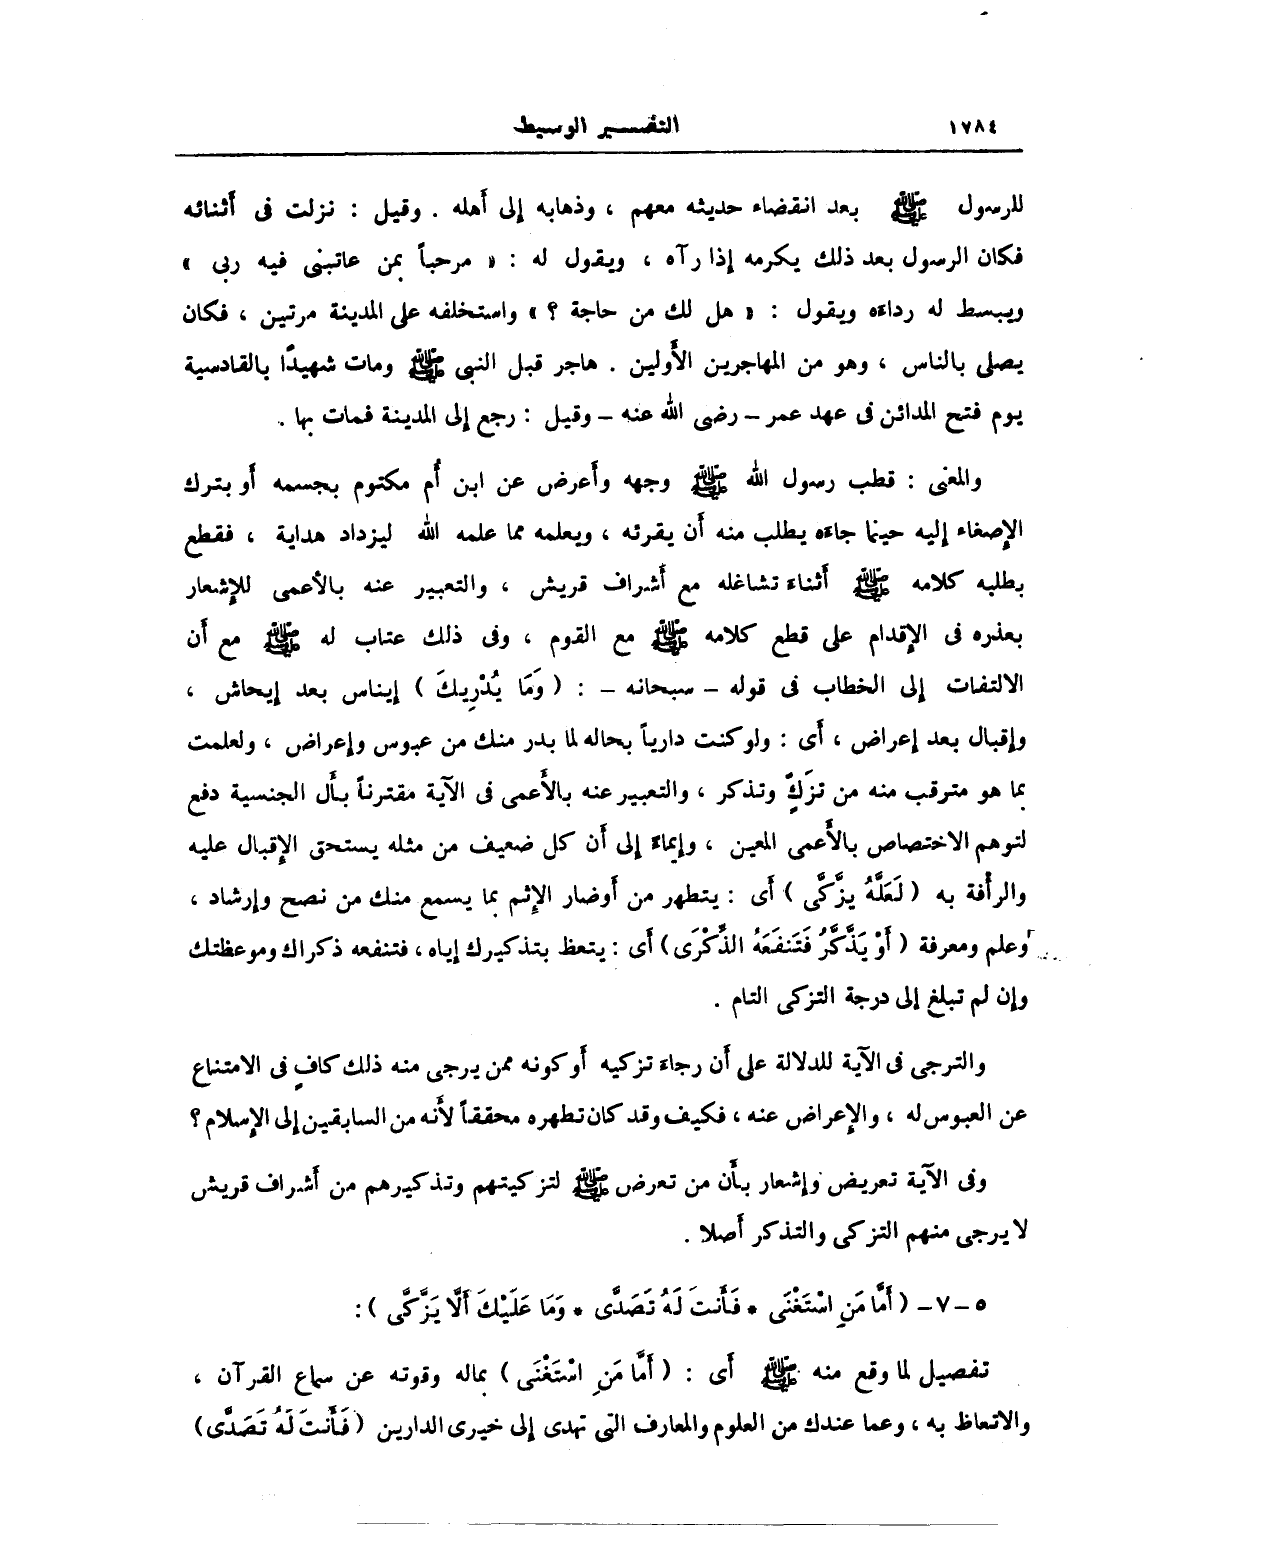 ١٧٨٤ التفسير الوسيط
للرسول ﷺ بعد انقضاء حديثه معهم ، وذهابه إلى أهله . وقيل : نزلت فى أثنائه
فكان الرسول بعد ذلك يكرمه إذا رآه ، ويقول له : « مرحباً بمن عاتبنى فيه ربى »
ويبسط له رداءه ويقول : « هل لك من حاجة ؟ » واستخلفه على المدينة مرتين ، فكان
يصلى بالناس ، وهو من المهاجرين الأَولين . هاجر قبل النبى ﷺ ومات شهيدًا بالقادسية
يوم فتح المدائن فى عهد عمر – رضى الله عنه – وقيل : رجع إلى المدينة فمات بها .
والمعنى : قطب رسول الله ﷺ وجهه وأَعرض عن ابن أُم مكتوم بجسمه أَو بترك
الإِصغاء إليه حينما جاءه يطلب منه أَن يقرئه ، ويعلمه مما علمه الله ليزداد هداية ، فقطع
بطلبه كلامه ﷺ أَثناءَ تشاغله مع أَشراف قريش ، والتعبير عنه بالأَعمى للإِشعار
بعذره فى الإِقدام على قطع كلامه ﷺ مع القوم ، وفى ذلك عتاب له ﷺ مع أَن
الالتفات إلى الخطاب فى قوله – سبحانه – : ( وَمَا يُدْرِيكَ ) إيناس بعد إيحاش ،
وإقبال بعد إعراض ، أَى : ولو كنت دارياً بحاله لما بدر منك من عبوس وإعراض ، ولعلمت
بما هو مترقب منه من تزَكٍّ وتذكر ، والتعبير عنه بالأَعمى فى الآية مقترناً بأَل الجنسية دفع
لتوهم الاختصاص بالأَعمى المعين ، وإيماءً إلى أَن كل ضعيف من مثله يستحق الإِقبال عليه
والرأْفة به ( لَعَلَّهُ يزَّكَّى ) أَى : يتطهر من أَوضار الإِثم بما يسمع منك من نصح وإرشاد ،
وعلم ومعرفة ( أَوْ يَذَّكَّرُ فَتَنفَعَهُ الذِّكْرَى) أَى : يتعظ بتذكيرك إياه ، فتنفعه ذكراك وموعظتك
وإن لم تبلغ إلى درجة التزكى التام .
والترجى فى الآية للدلالة على أَن رجاءَ تزكيه أَو كونه ممن يرجى منه ذلك كافٍ فى الامتناع
عن العبوس له ، والإِعراض عنه ، فكيف وقد كان تطهره محققاً لأَنه من السابقين إلى الإِسلام ؟
وفى الآية تعريض وإشعار بأَن من تعرض ﷺ لتزكيتهم وتذكيرهم من أَشراف قريش
لا يرجى منهم التزكى والتذكر أَصلا .
٥ – ٧ – ( أَمَّا مَنِ اسْتَغْنَى * فَأَنتَ لَهُ تَصَدَّى * وَمَا عَلَيْكَ أَلَّا يَزَّكَّى ) :
تفصيل لما وقع منه ﷺ أَى : ( أَمَّا مَنِ اسْتَغْنَى ) بماله وقوته عن سماع القرآن ،
والاتعاظ به ، وعما عندك من العلوم والمعارف التى تهدى إلى خيرى الدارين ( فَأَنتَ لَهُ تَصَدَّى)